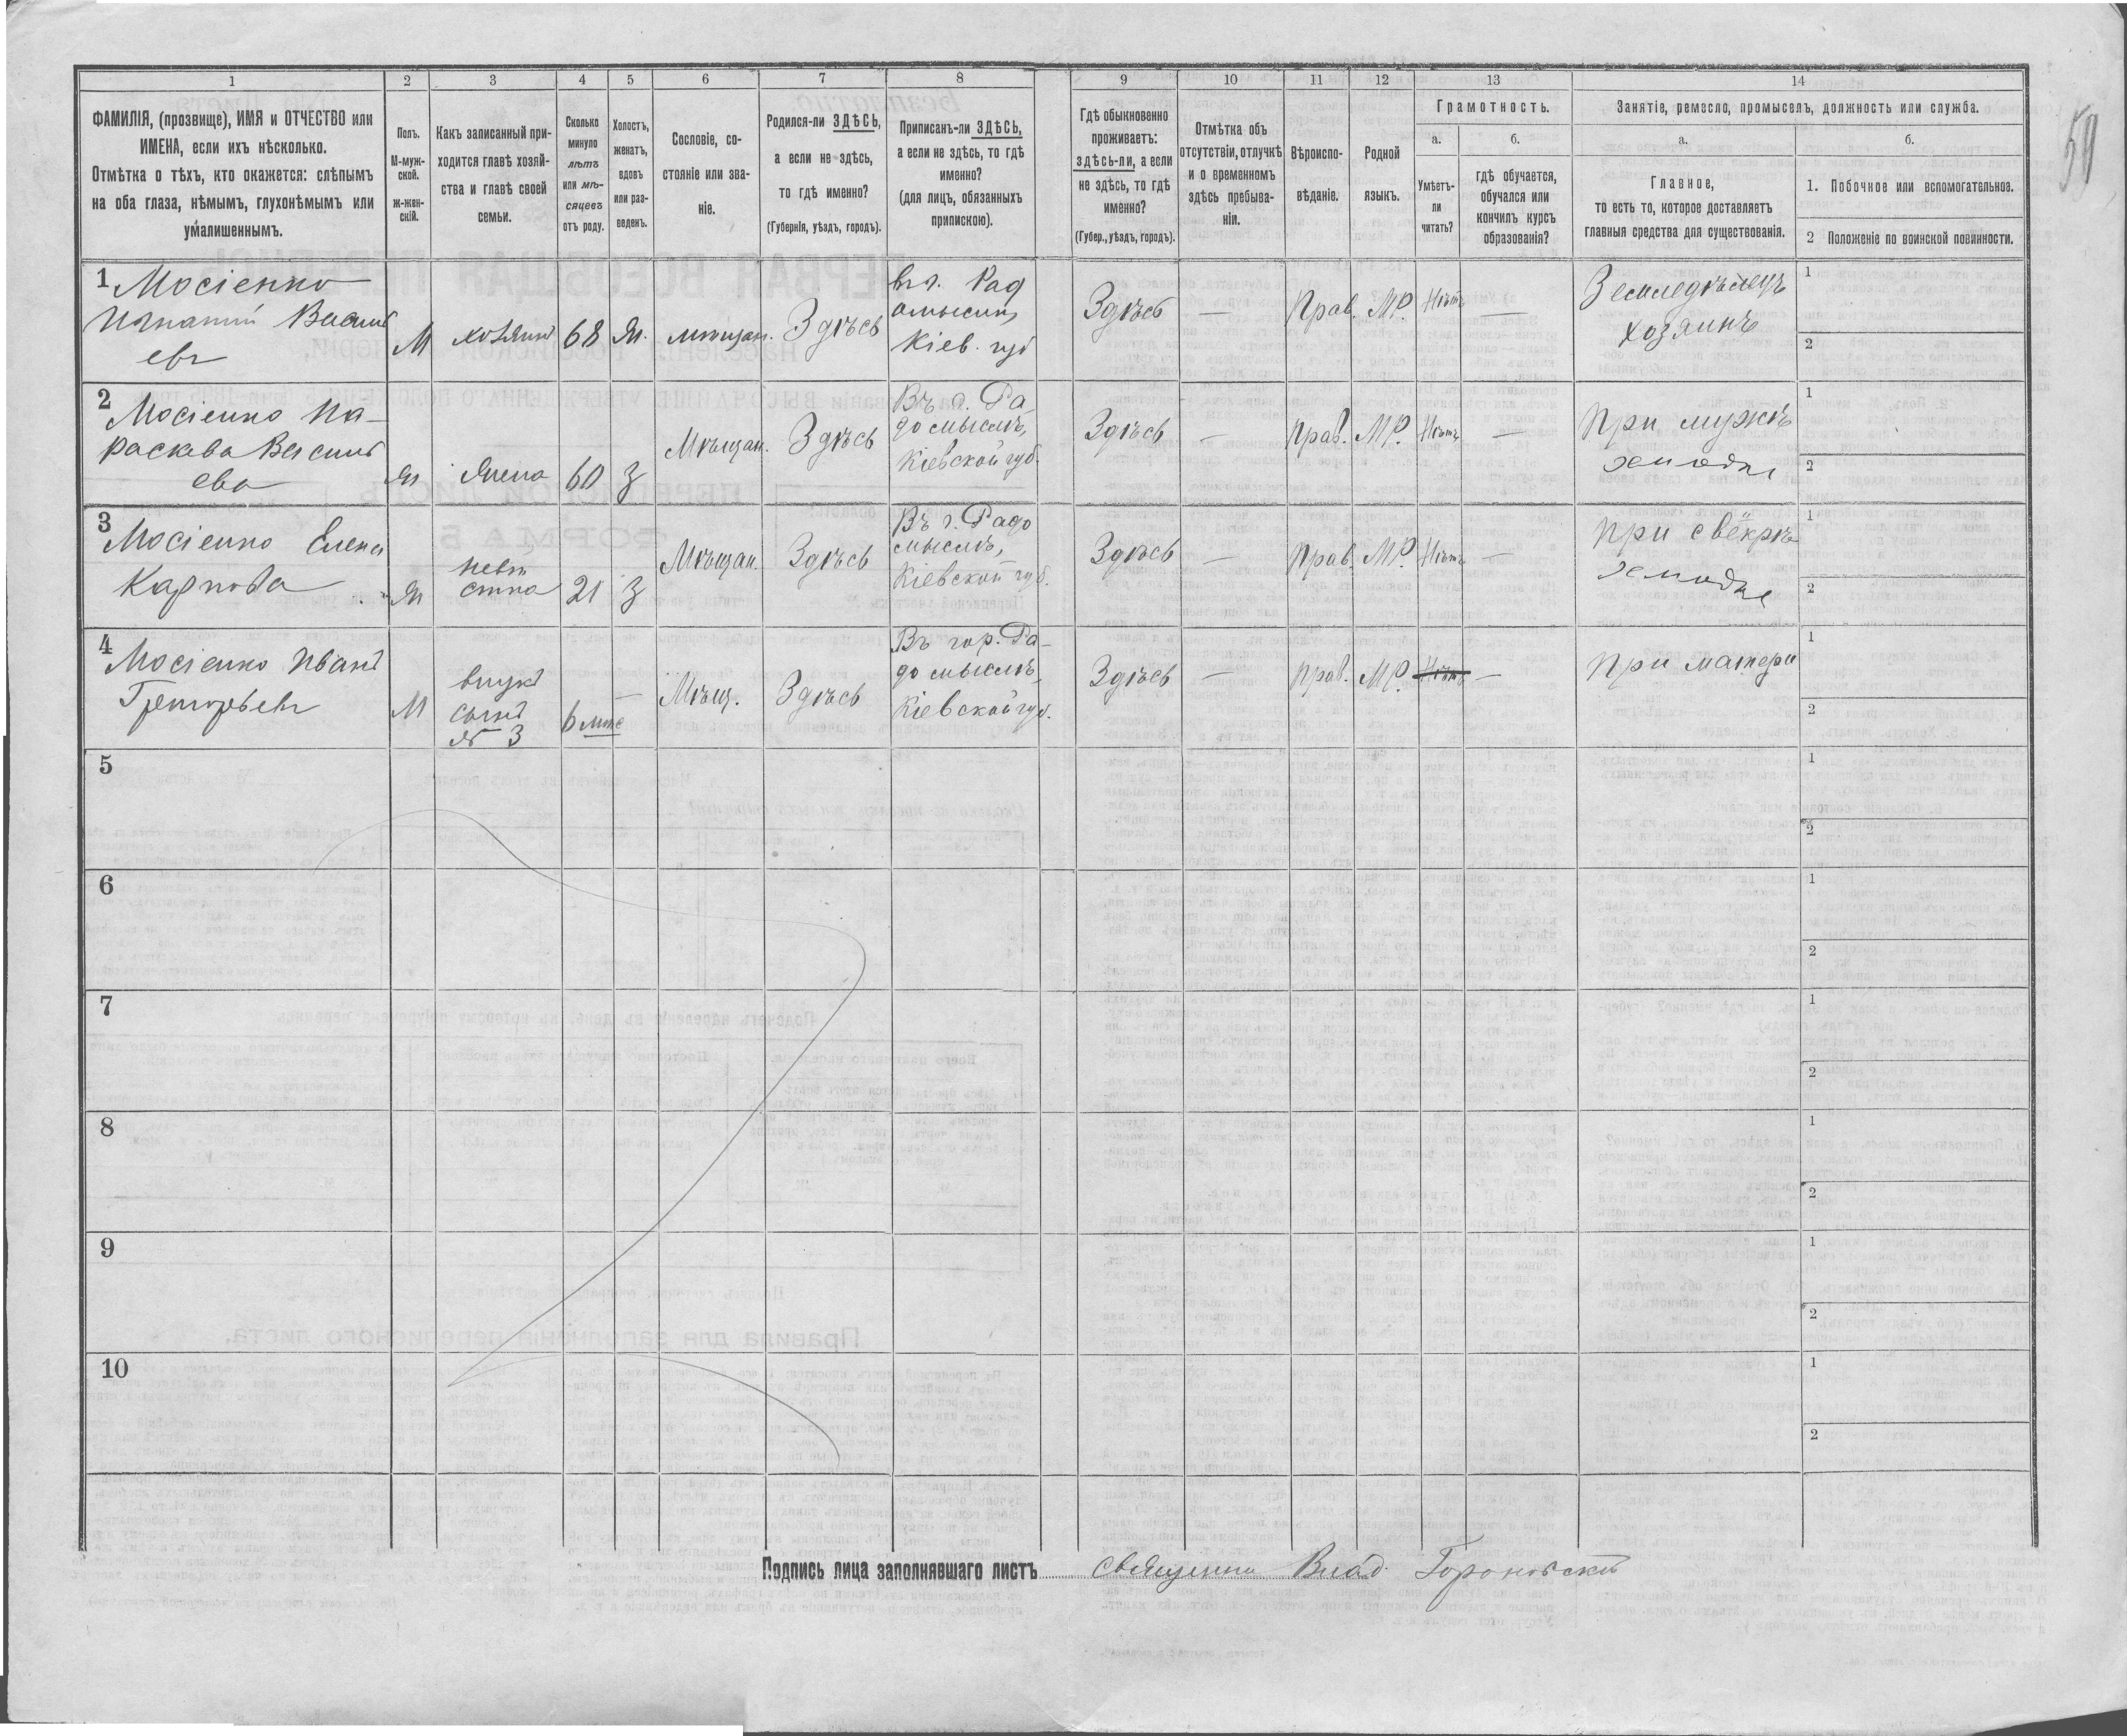 59
1 2 3 4 5 6 7 8 9 10 11 12 13 14
ФАМИЛІЯ, (прозвище), ИМЯ и ОТЧЕСТВО или
ИМЕНА, если ихъ нѣсколько.
Отмѣтка о тѣхъ, кто окажется: слѣпымъ
на оба глаза, нѣмымъ, глухонѣмымъ или
умалишеннымъ.
Полъ.
М-муж-
ской.
ж-жен-
скій.
Какъ записанный при-
ходится главѣ хозяй-
ства и главѣ своей
семьи.
Сколько
минуло
лѣтъ
или мѣ-
сяцевъ
отъ роду.
Холостъ,
женатъ,
вдовъ
или раз-
веденъ.
Сословіе, со-
стояніе или зва-
ніе.
Родился-ли ЗДѢСЬ,
а если не здѣсь,
то гдѣ именно?
(Губернія, уѣздъ, городъ).
Приписанъ-ли ЗДѢСЬ,
а если не здѣсь, то гдѣ
именно?
(для лицъ, обязанныхъ
припискою).
Гдѣ обыкновенно
проживаетъ:
здѣсь-ли, а если
не здѣсь, то гдѣ
именно?
(Губер., уѣздъ, городъ).
Отмѣтка объ
отсутствіи, отлучкѣ
и о временномъ
здѣсь пребыва-
ніи.
Вѣроиспо-
вѣданіе.
Родной
языкъ.
Грамотность.
а.
Умѣетъ-
ли
читать?
б.
гдѣ обучается,
обучался или
кончилъ курсъ
образованія?
Занятіе, ремесло, промыселъ, должность или служба.
а.
Главное,
то есть то, которое доставляетъ
главныя средства для существованія.
б.
1. Побочное или вспомогательное.
2 Положеніе по воинской повинности.
1 Мосіенко
Игнатій Василь
евъ
М
хозяинъ
68
Ж.
мѣщан.
Здѣсь
Рад
омысли,
Кіев. губ
Здѣсь
—
Прав.
МР.
Нѣтъ
—
Земледѣлецъ
хозяинъ
1
2
2 Мосіенко Па-
раскева Василь
ева
Ж
Жена
60
З
Мѣщан.
Здѣсь
Въ г. Ра-
домыслѣ,
Кіевской губ.
Здѣсь
—
Прав.
МР.
Нѣтъ
—
При мужѣ
1
2
3 Мосіенко Елена
Карпова
Ж
невѣ
стка
21
З
Мѣщан.
Здѣсь
Въ г. Радо
мыслѣ,
Кіевской губ.
Здѣсь
—
Прав.
МР.
Нѣтъ
—
При свёкрѣ
1
2
4 Мосіенко Иванъ
Григорьевъ
М
внукъ
сынъ
№ 3
6 мѣс
—
Мѣщ.
Здѣсь
Въ гор. Ра-
домыслѣ,
Кіевской губ.
Здѣсь
—
Прав.
МР.
Нѣтъ
—
При матери
1
2
5
1
2
6
1
2
7
1
2
8
1
2
9
1
2
10
1
2
Подпись лица заполнявшаго листъ Влад. Гороновскій